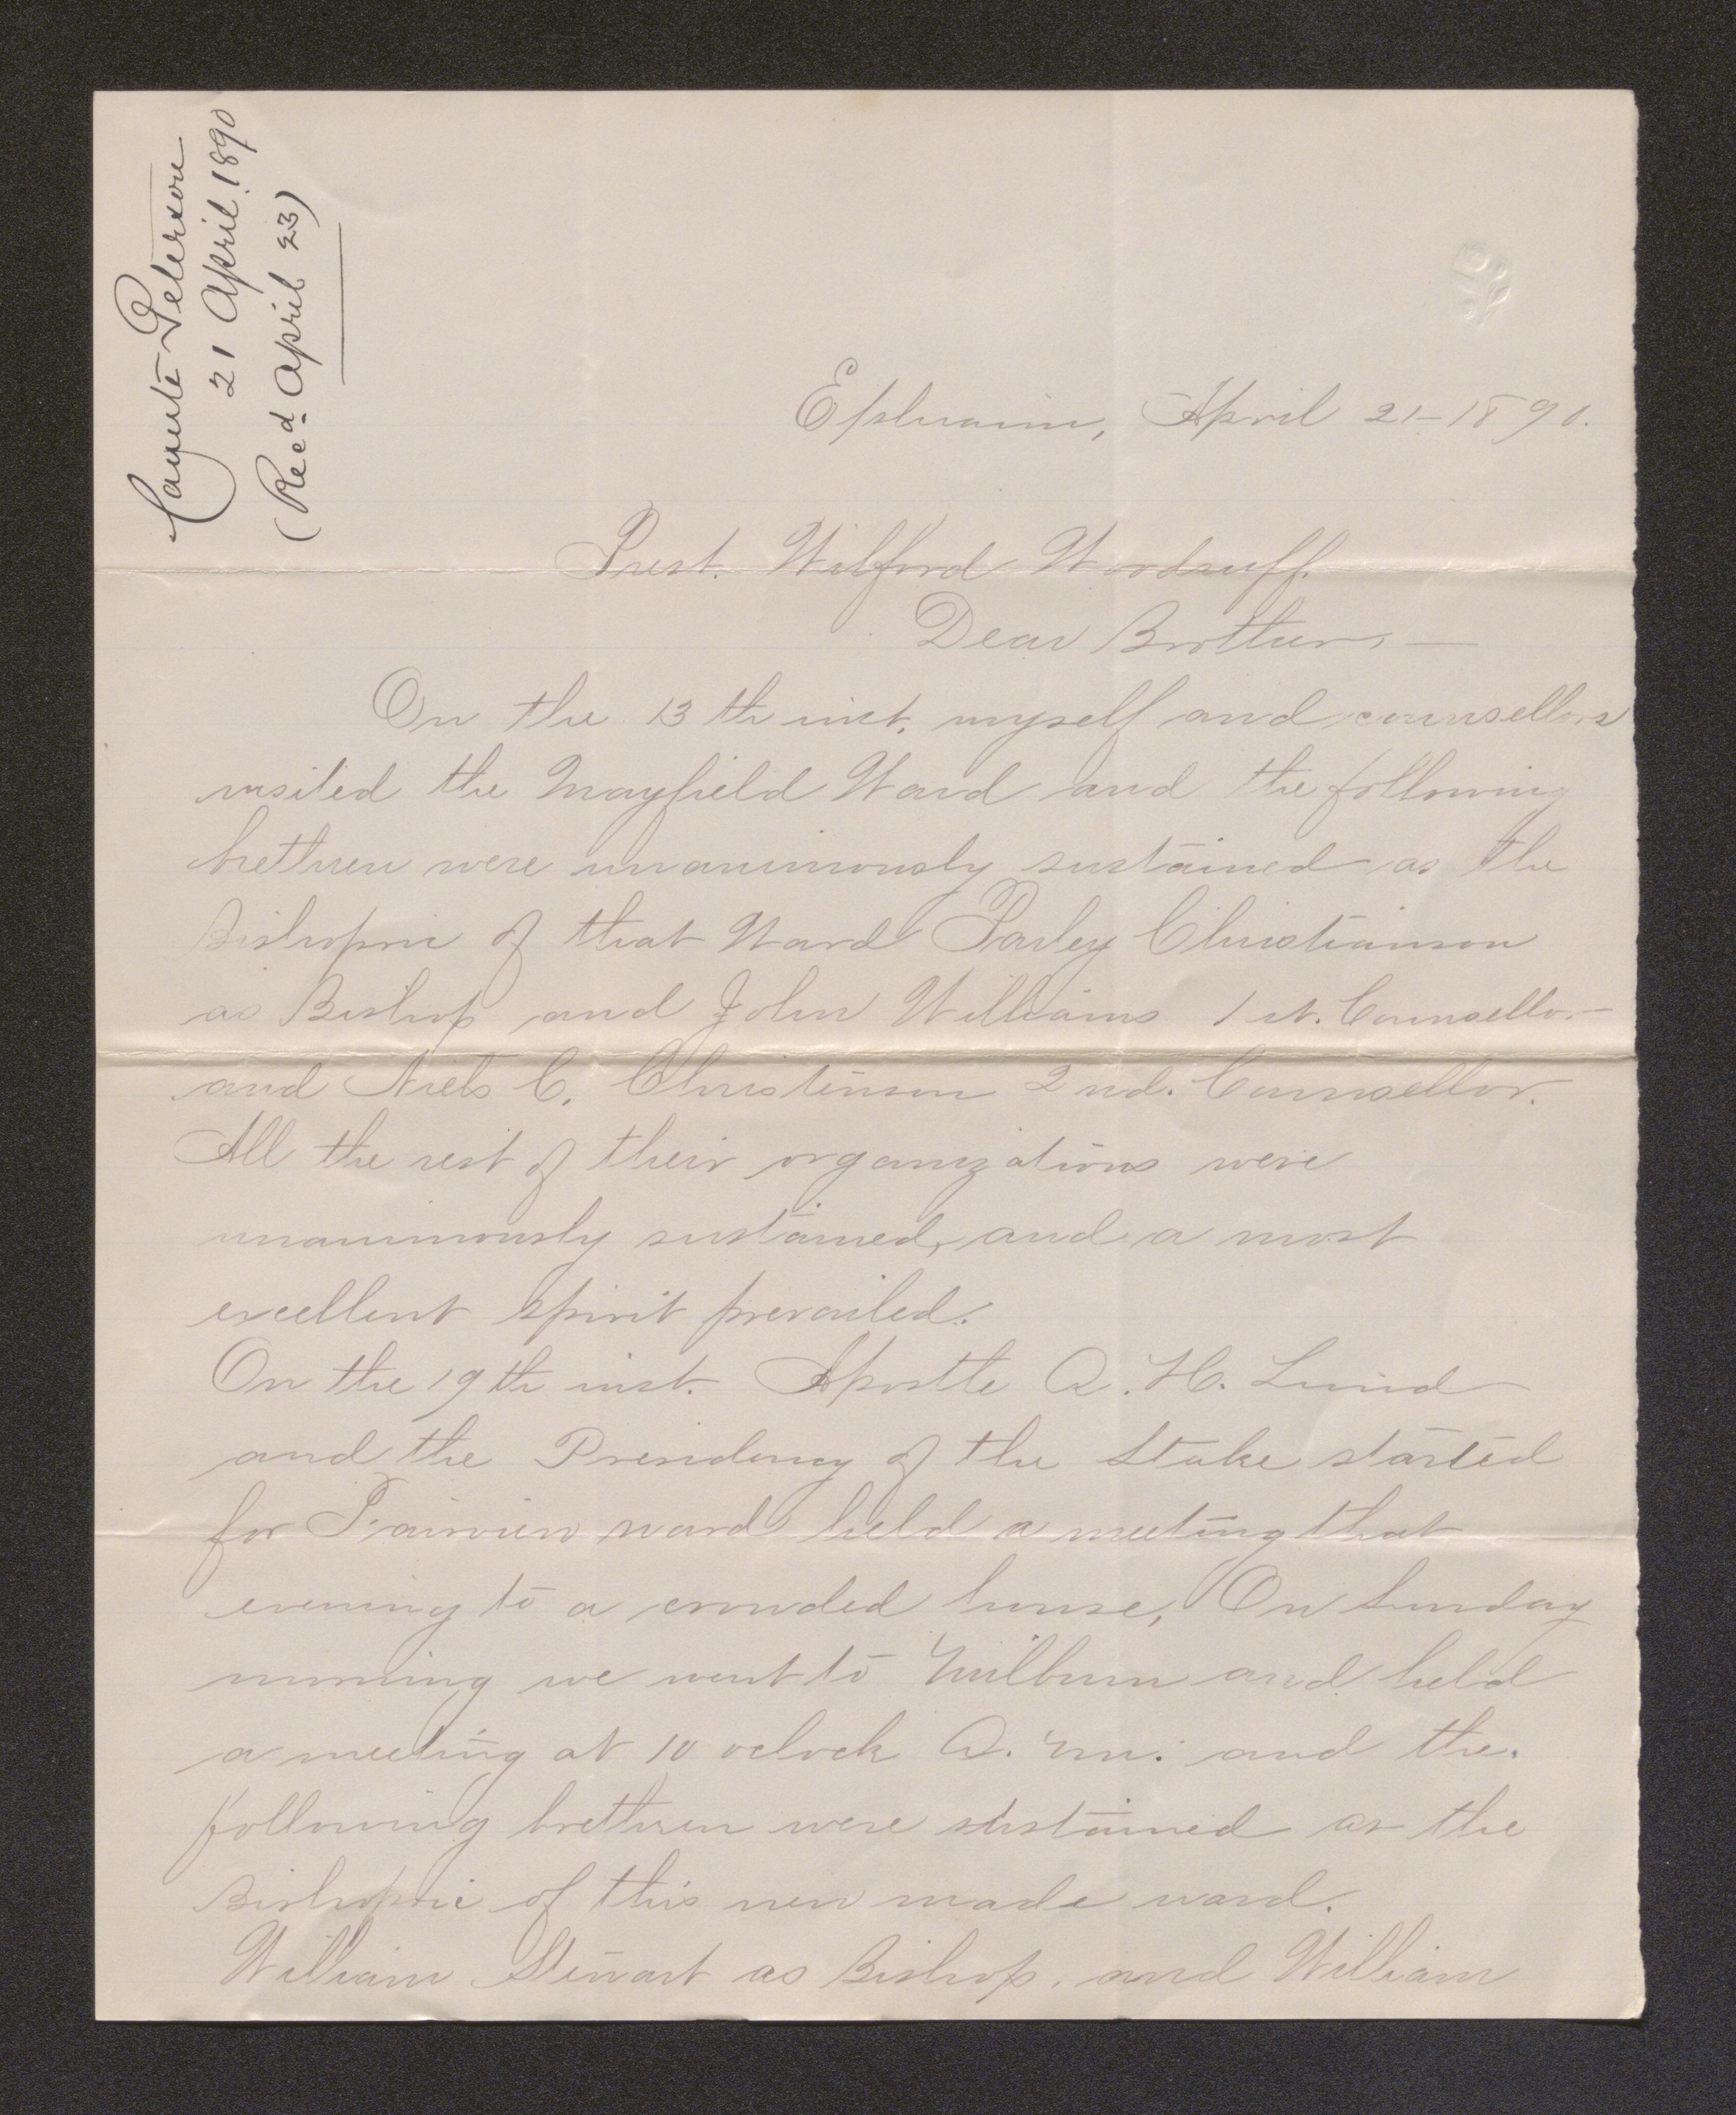 Canute Peterson
21 April 1890
(Recd April 23)
Ephraim, April 21-1890.
Prest. Wilford Woodruff.
Dear Brother,—
On the 13th inst. myself and counsellors
visited the Mayfield Ward and the following
brethren were unanimously sustained as the
Bishopric of that Ward Parley Christianson
as Bishop and John Williams 1st. Counsellor
and Niels C. Christenson 2nd. Counsellor.
All the rest of their organizations were
unanimously sustained, and a most
excellent spirit prevailed.
On the 19th inst. Apostle A. H. Lund
and the Presidency of the Stake started
for Fairview ward held a meeting that
evening to a crowded house, On Sunday
morning we went to Milburn and held
a meeting at 10 oclock A. M. and the
following brethren were sustained as the
Bishopric of this new made ward.
William Stewart as Bishop, and William